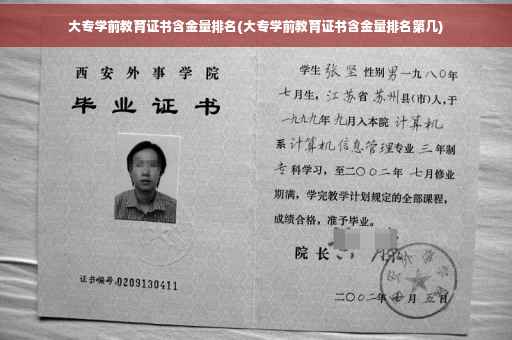 大专学前教育证书含金量排名(大专学前教育证书含金量排名第几)
西安外事学院
毕业证书
证书编号:0209130411
学生 张坚 性别 男 一九八〇年
七月生, 江苏省 苏州 县(市)人,于
一九九九年 九月入本院 计算机
系 计算机信息管理 专业 三 年制
专 科学习, 至二〇〇二年 七月修业
期满, 学完教学计划规定的全部课程,
成绩合格, 准予毕业。
院长
二〇〇二年 月 五日